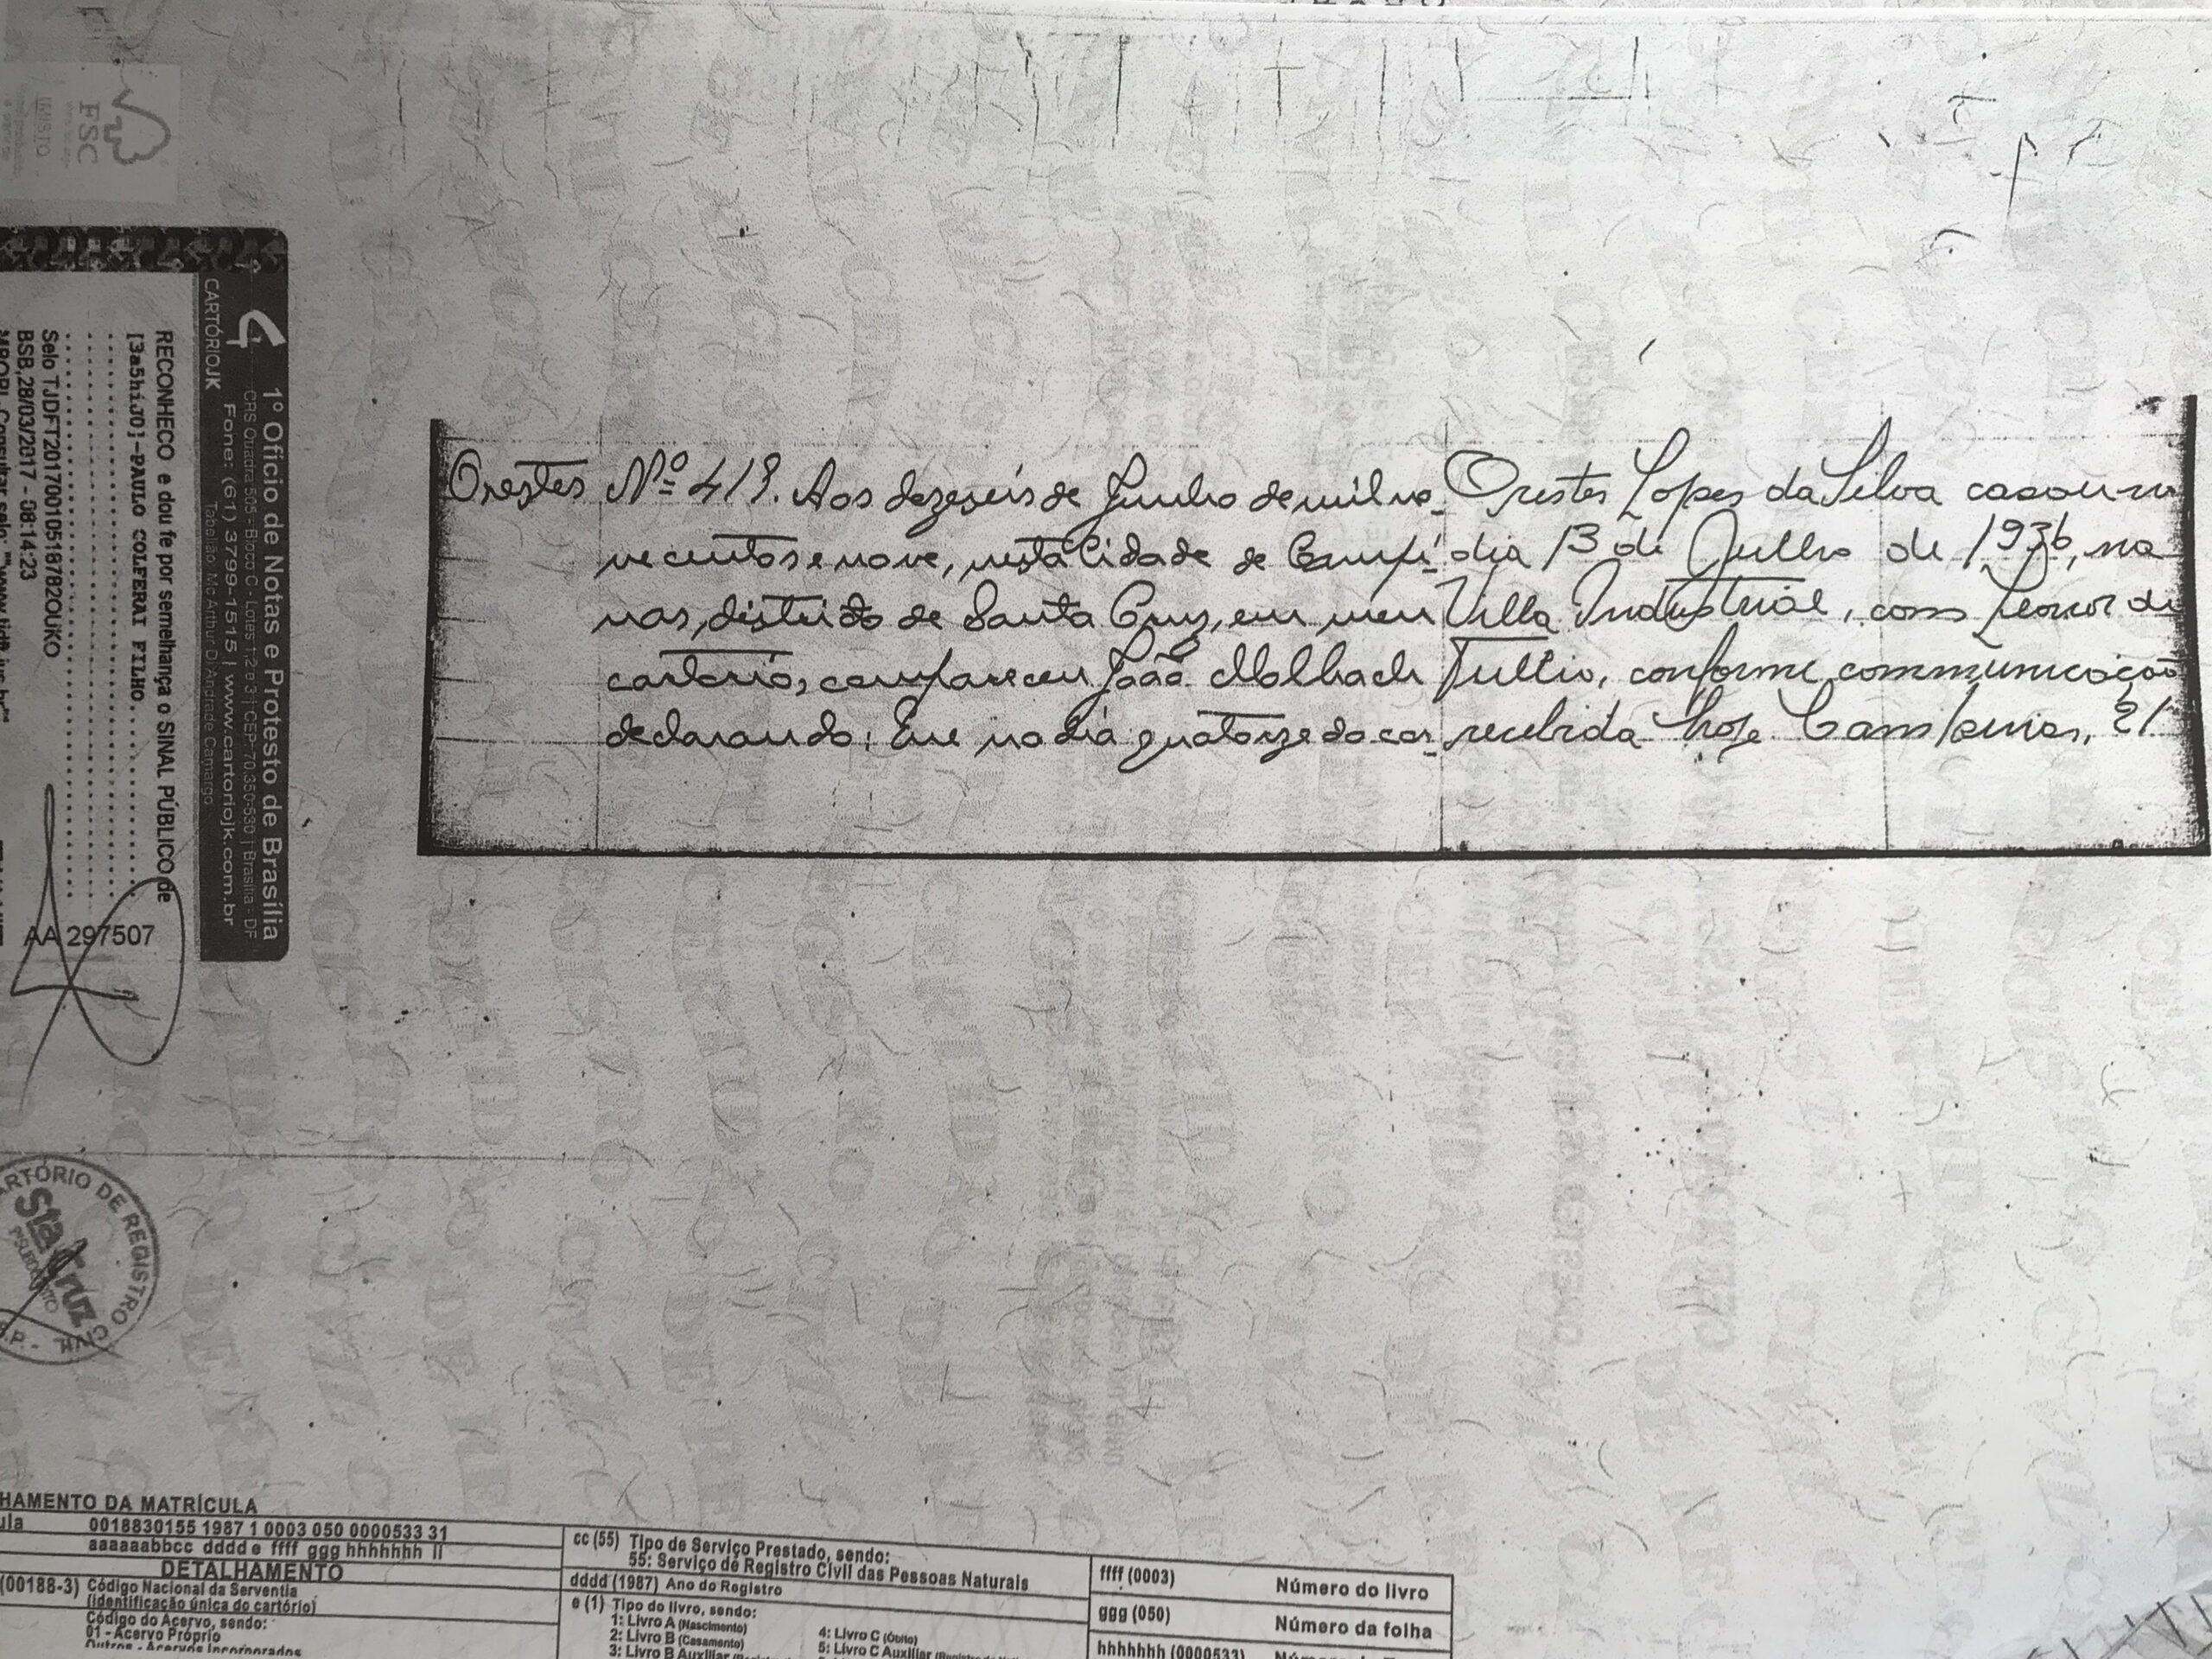 FSC
MISTO
1º Ofício de Notas e Protesto de Brasília
CRS Quadra 505 - Bloco C - Lotes 1,2 e 3 | CEP: 70.350-530 | Brasília - DF
Fone: (61) 3799-1515 | www.cartoriojk.com.br
Tabelião: Mc Arthur Di Andrade Camargo
CARTÓRIOJK
RECONHECO e dou fe por semelhança o SINAL PÚBLICO de
[3a5hiJ0]-PAULO COLFERAI FILHO
Selo TJDFT20170010518782OUKO
BSB,28/03/2017 - 08:14:23
AA 297507
Orestes
Nº 419. Aos dezeseis de Junho de mil no-
vecentos e nove, nesta Cidade de Campi-
nas, districto de Santa Cruz, em meu
cartorio, compareceu João
declarando: Que no dia quatorze do cor-
Orestes Lopes da Silva casou-se
dia 13 de Julho de 1936, na
Villa Industrial, com Leonor di
Tullio, conforme communicação
recebida hoje Campinas, 21
CARTÓRIO DE REGISTRO CIVIL
Sta Cruz
HAMENTO DA MATRÍCULA
ula 0018830155 1987 1 0003 050 0000533 31
aaaaaabbcc dddd e ffff ggg hhhhhhh ii
DETALHAMENTO
(00188-3) Código Nacional da Serventia
(identificação única do cartório)
Código do Acervo, sendo:
01 - Acervo Próprio
Outros - Acervos Incorporados
cc (55) Tipo de Serviço Prestado, sendo:
55: Serviço de Registro Civil das Pessoas Naturais
dddd (1987) Ano do Registro
e (1) Tipo do livro, sendo:
1: Livro A (Nascimento)
2: Livro B (Casamento)
3: Livro B Auxiliar
4: Livro C (Óbito)
5: Livro C Auxiliar
ffff (0003) Número do livro
ggg (050) Número da folha
hhhhhhh (0000533)